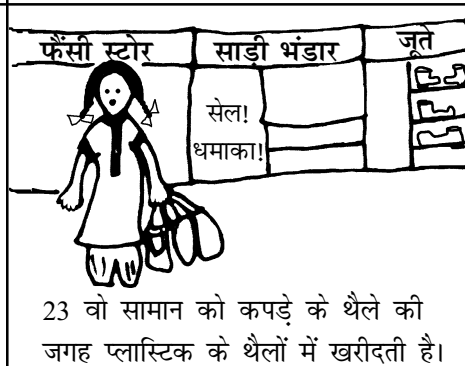 फैंसी स्टोर
साड़ी भंडार
जूते
सेल!
धमाका!
23 वो सामान को कपड़े के थैले की
जगह प्लास्टिक के थैलों में खरीदती है।